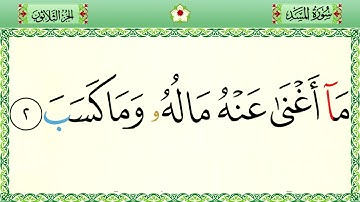 سُورَةُ المَسَد
الجُزءُ الثَّلَاثُونَ
مَآ أَغْنَىٰ عَنْهُ مَالُهُۥ وَمَا كَسَبَ ٢